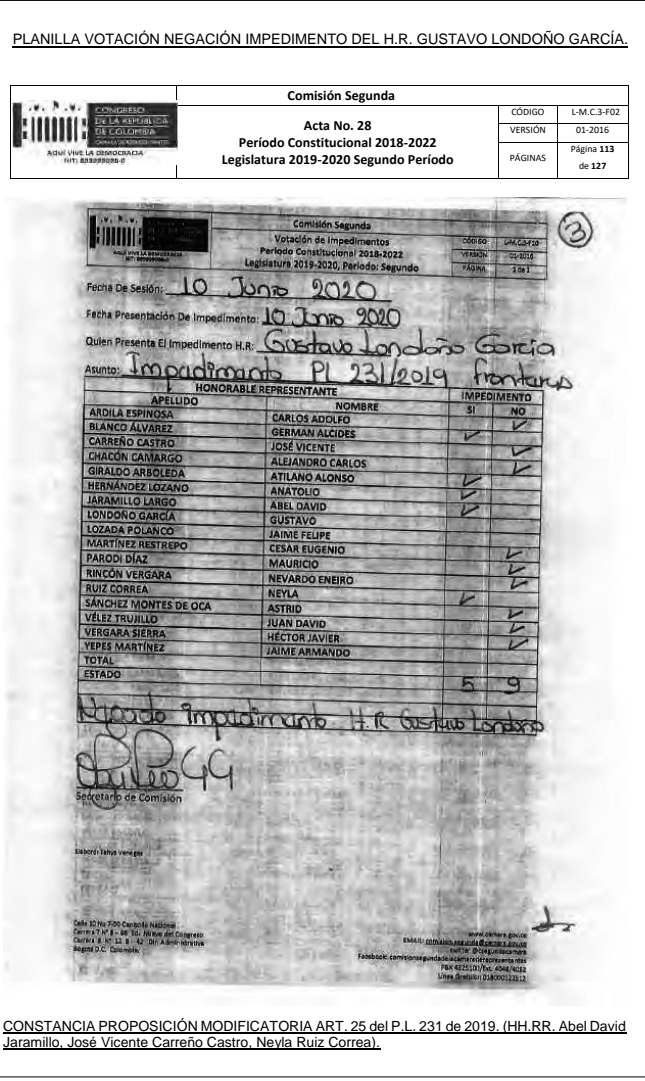 PLANILLA VOTACIÓN NEGACIÓN IMPEDIMENTO DEL H.R. GUSTAVO LONDOÑO GARCÍA.
CONGRESO
DE LA REPÚBLICA
DE COLOMBIA
CÁMARA DE REPRESENTANTES
AQUÍ VIVE LA DEMOCRACIA
NIT: 899999098-0
Comisión Segunda
Acta No. 28
Período Constitucional 2018-2022
Legislatura 2019-2020 Segundo Período
CÓDIGO L-M.C.3-F02
VERSIÓN 01-2016
PÁGINAS Página 113 de 127
3
Comisión Segunda
Votación de Impedimentos
Período Constitucional 2018-2022
Legislatura 2019-2020, Período: Segundo
CÓDIGO L-M.C.3-F10
VERSIÓN 01-2016
PÁGINA 1 de 1
AQUÍ VIVE LA DEMOCRACIA
Fecha De Sesión: 10 Junio 2020
Fecha Presentación De Impedimento: 10 Junio 2020
Quien Presenta El Impedimento H.R: Gustavo Londoño García
Asunto: Impedimento Pl 231/2019 fronteras
HONORABLE REPRESENTANTE IMPEDIMENTO
APELLIDO NOMBRE SI NO
ARDILA ESPINOSA CARLOS ADOLFO ✓
BLANCO ÁLVAREZ GERMAN ALCIDES ✓
CARREÑO CASTRO JOSÉ VICENTE ✓
CHACÓN CAMARGO ALEJANDRO CARLOS ✓
GIRALDO ARBOLEDA ATILANO ALONSO ✓
HERNÁNDEZ LOZANO ANATOLIO ✓
JARAMILLO LARGO ABEL DAVID ✓
LONDOÑO GARCÍA GUSTAVO
LOZADA POLANCO JAIME FELIPE
MARTÍNEZ RESTREPO CESAR EUGENIO ✓
PARODI DÍAZ MAURICIO ✓
RINCÓN VERGARA NEVARDO ENEIRO ✓
RUIZ CORREA NEYLA ✓
SÁNCHEZ MONTES DE OCA ASTRID ✓
VÉLEZ TRUJILLO JUAN DAVID ✓
VERGARA SIERRA HÉCTOR JAVIER ✓
YEPES MARTÍNEZ JAIME ARMANDO
TOTAL
ESTADO 5 9
Negado impedimento H.R Gustavo Londoño
Secretario de Comisión
Elaboró: Tanya Venegas
Calle 10 No 7-50 Capitolio Nacional
Carrera 7 N° 8 – 68 Edi. Nuevo del Congreso
Carrera 8 N° 12 B - 42 Dir. Administrativa
Bogotá D.C. Colombia.
www.camara.gov.co
EMAIL: comision.segunda@camara.gov.co
twitter @csegundacamara
Facebook: comisionsegundadelacamaraderepresentantes
PBX 4325100/Ext. 4048/4052
Línea Gratuita: 018000122512
CONSTANCIA PROPOSICIÓN MODIFICATORIA ART. 25 del P.L. 231 de 2019. (HH.RR. Abel David
Jaramillo, José Vicente Carreño Castro, Neyla Ruiz Correa).